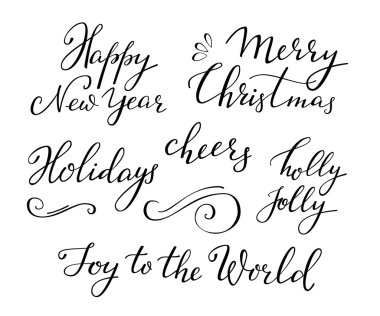 Happy
New Year
Merry
Christmas
Holidays
cheers
holly
Jolly
Joy to the World